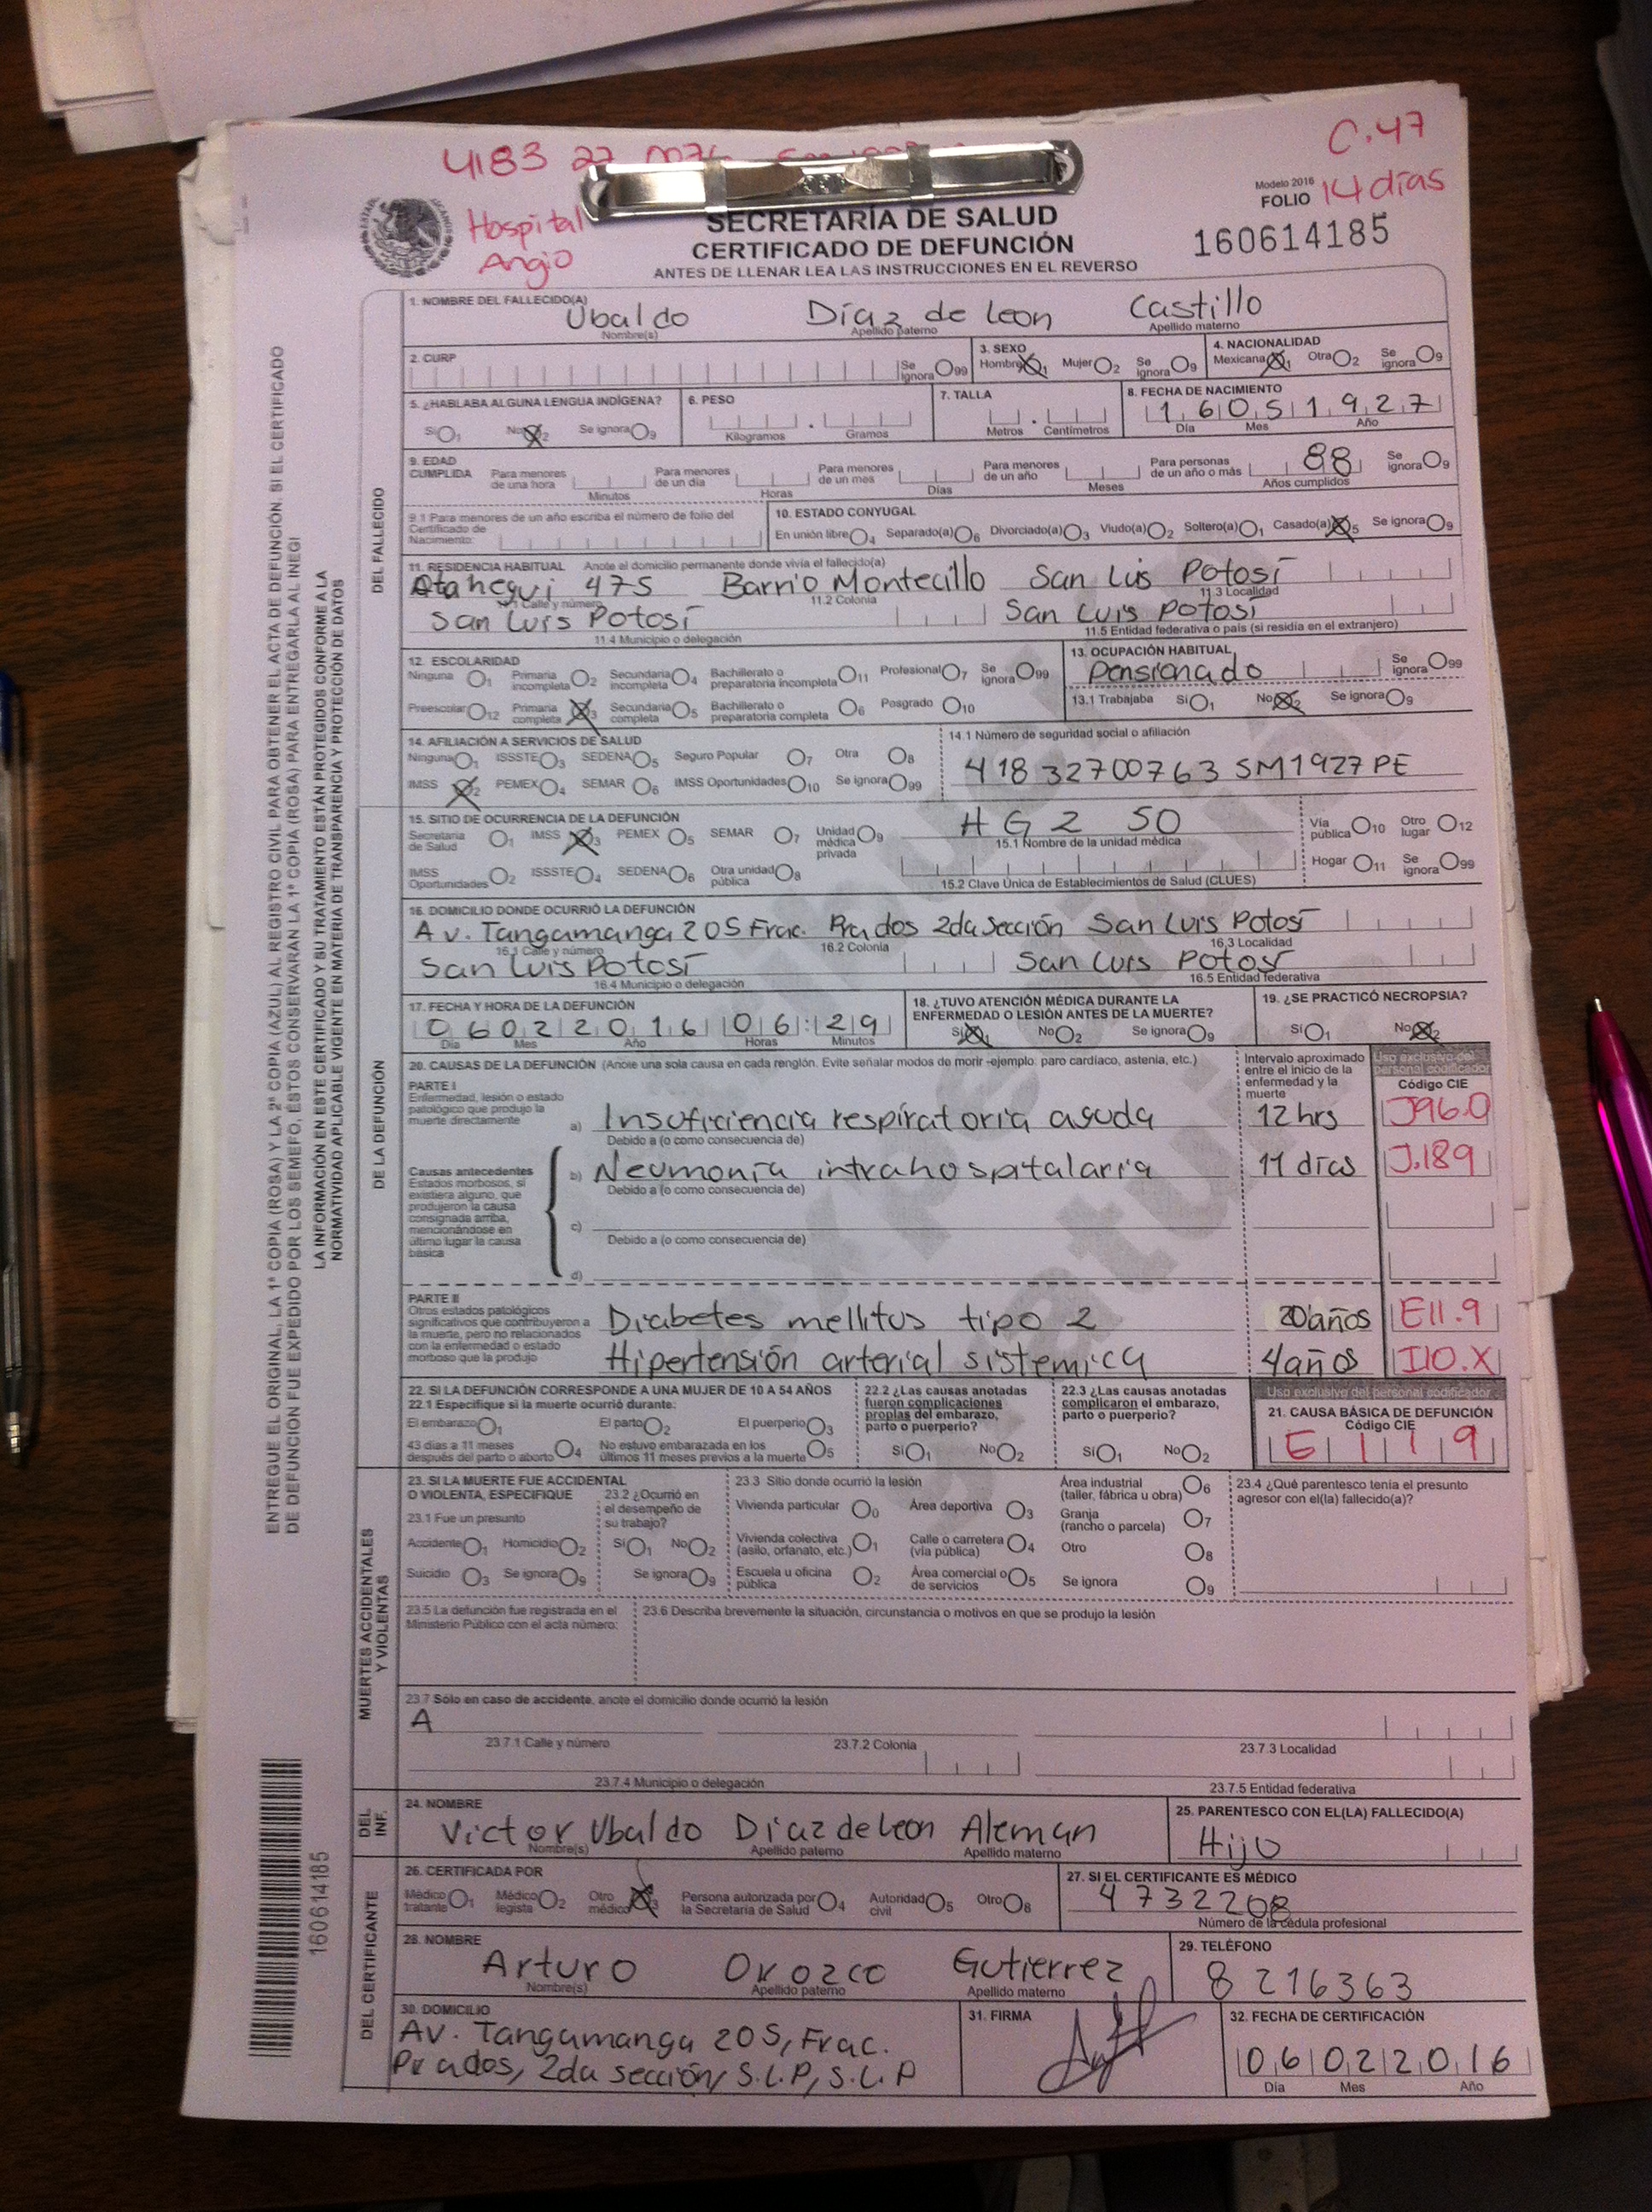 4183 27
C.47
Hospital
Angio
Modelo 2016
FOLIO 14 días
160614185
SECRETARÍA DE SALUD
CERTIFICADO DE DEFUNCIÓN
ANTES DE LLENAR LEA LAS INSTRUCCIONES EN EL REVERSO
ENTREGUE EL ORIGINAL, LA 1ª COPIA (ROSA) Y LA 2ª COPIA (AZUL) AL REGISTRO CIVIL PARA OBTENER EL ACTA DE DEFUNCIÓN. SI EL CERTIFICADO
DE DEFUNCIÓN FUE EXPEDIDO POR LOS SEMEFO, ÉSTOS CONSERVARÁN LA 1ª COPIA (ROSA) PARA ENTREGARLA AL INEGI
LA INFORMACIÓN EN ESTE CERTIFICADO Y SU TRATAMIENTO ESTÁN PROTEGIDOS CONFORME A LA
NORMATIVIDAD APLICABLE VIGENTE EN MATERIA DE TRANSPARENCIA Y PROTECCIÓN DE DATOS
160614185
DEL FALLECIDO
1. NOMBRE DEL FALLECIDO(A)
Ubaldo Díaz de leon Castillo
Nombre(s) Apellido paterno Apellido materno
2. CURP Se ignora 99 3. SEXO Hombre 1 Mujer 2 Se ignora 9 4. NACIONALIDAD Mexicana 1 Otra 2 Se ignora 9
5. ¿HABLABA ALGUNA LENGUA INDÍGENA? 6. PESO 7. TALLA 8. FECHA DE NACIMIENTO
Sí 1 No 2 Se ignora 9 Kilogramos Gramos Metros Centímetros 16051927
Día Mes Año
9. EDAD CUMPLIDA Para menores de una hora Minutos Para menores de un día Horas Para menores de un mes Días Para menores de un año Meses Para personas de un año o más 88 Años cumplidos Se ignora 9
9.1 Para menores de un año escriba el número de folio del Certificado de Nacimiento:
10. ESTADO CONYUGAL
En unión libre 4 Separado(a) 6 Divorciado(a) 3 Viudo(a) 2 Soltero(a) 1 Casado(a) 5 Se ignora 9
11. RESIDENCIA HABITUAL Anote el domicilio permanente donde vivía el fallecido(a)
475 Barrio Montecillo San Luis Potosí
11.1 Calle y número 11.2 Colonia 11.3 Localidad
San Luis Potosí San Luis Potosí
11.4 Municipio o delegación 11.5 Entidad federativa o país (si residía en el extranjero)
12. ESCOLARIDAD
Ninguna 1 Primaria incompleta 2 Secundaria incompleta 4 Bachillerato o preparatoria incompleta 11 Profesional 7 Se ignora 99
Preescolar 12 Primaria completa 3 Secundaria completa 5 Bachillerato o preparatoria completa 6 Posgrado 10
13. OCUPACIÓN HABITUAL
Pensionado Se ignora 99
13.1 Trabajaba Sí 1 No 2 Se ignora 9
14. AFILIACIÓN A SERVICIOS DE SALUD
Ninguna 1 ISSSTE 3 SEDENA 5 Seguro Popular 7 Otra 8
IMSS 2 PEMEX 4 SEMAR 6 IMSS Oportunidades 10 Se ignora 99
14.1 Número de seguridad social o afiliación
41832700763 SM1927PE
DE LA DEFUNCIÓN
15. SITIO DE OCURRENCIA DE LA DEFUNCIÓN
Secretaría de Salud 1 IMSS 3 PEMEX 5 SEMAR 7 Unidad médica privada 9
IMSS Oportunidades 2 ISSSTE 4 SEDENA 6 Otra unidad pública 8
HGZ 50
15.1 Nombre de la unidad médica
15.2 Clave Única de Establecimientos de Salud (CLUES)
Vía pública 10 Otro lugar 12
Hogar 11 Se ignora 99
16. DOMICILIO DONDE OCURRIÓ LA DEFUNCIÓN
Av. Tangamanga 205 Frac. Prados 2da Sección San Luis Potosí
16.1 Calle y número 16.2 Colonia 16.3 Localidad
San Luis Potosí San Luis Potosí
16.4 Municipio o delegación 16.5 Entidad federativa
17. FECHA Y HORA DE LA DEFUNCIÓN
06022016 06:29
Día Mes Año Horas Minutos
18. ¿TUVO ATENCIÓN MÉDICA DURANTE LA ENFERMEDAD O LESIÓN ANTES DE LA MUERTE?
Sí 1 No 2 Se ignora 9
19. ¿SE PRACTICÓ NECROPSIA?
Sí 1 No 2
20. CAUSAS DE LA DEFUNCIÓN (Anote una sola causa en cada renglón. Evite señalar modos de morir -ejemplo: paro cardíaco, astenia, etc.)
Intervalo aproximado entre el inicio de la enfermedad y la muerte
Uso exclusivo del personal codificador
Código CIE
PARTE I
Enfermedad, lesión o estado patológico que produjo la muerte directamente
a) Insuficiencia respiratoria aguda 12 hrs J96.0
Debido a (o como consecuencia de)
Causas antecedentes
Estados morbosos, si existiera alguno, que produjeron la causa consignada arriba, mencionándose en último lugar la causa básica
b) Neumonía intrahospitalaria 11 días J189
Debido a (o como consecuencia de)
c)
Debido a (o como consecuencia de)
d)
PARTE II
Otros estados patológicos significativos que contribuyeron a la muerte, pero no relacionados con la enfermedad o estado morboso que la produjo
Diabetes mellitus tipo 2 20 años E11.9
Hipertensión arterial sistemica 4 años I10.X
22. SI LA DEFUNCIÓN CORRESPONDE A UNA MUJER DE 10 A 54 AÑOS
22.1 Especifique si la muerte ocurrió durante:
El embarazo 1 El parto 2 El puerperio 3
43 días a 11 meses después del parto o aborto 4 No estuvo embarazada en los últimos 11 meses previos a la muerte 5
22.2 ¿Las causas anotadas fueron complicaciones propias del embarazo, parto o puerperio?
Sí 1 No 2
22.3 ¿Las causas anotadas complicaron el embarazo, parto o puerperio?
Sí 1 No 2
Uso exclusivo del personal codificador
21. CAUSA BÁSICA DE DEFUNCIÓN
Código CIE
E119
MUERTES ACCIDENTALES Y VIOLENTAS
23. SI LA MUERTE FUE ACCIDENTAL O VIOLENTA, ESPECIFIQUE
23.1 Fue un presunto
Accidente 1 Homicidio 2
Suicidio 3 Se ignora 9
23.2 ¿Ocurrió en el desempeño de su trabajo?
Sí 1 No 2
Se ignora 9
23.3 Sitio donde ocurrió la lesión
Vivienda particular 0 Área deportiva 3 Área industrial (taller, fábrica u obra) 6
Vivienda colectiva (asilo, orfanato, etc.) 1 Calle o carretera (vía pública) 4 Granja (rancho o parcela) 7
Escuela u oficina pública 2 Área comercial o de servicios 5 Otro 8
Se ignora 9
23.4 ¿Qué parentesco tenía el presunto agresor con el(la) fallecido(a)?
23.5 La defunción fue registrada en el Ministerio Público con el acta número:
23.6 Describa brevemente la situación, circunstancia o motivos en que se produjo la lesión
23.7 Sólo en caso de accidente, anote el domicilio donde ocurrió la lesión
A
23.7.1 Calle y número 23.7.2 Colonia 23.7.3 Localidad
23.7.4 Municipio o delegación 23.7.5 Entidad federativa
DEL INF.
24. NOMBRE
Victor Ubaldo Diaz de leon Aleman
Nombre(s) Apellido paterno Apellido materno
25. PARENTESCO CON EL(LA) FALLECIDO(A)
Hijo
DEL CERTIFICANTE
26. CERTIFICADA POR
Médico tratante 1 Médico legista 2 Otro médico 3 Persona autorizada por la Secretaría de Salud 4 Autoridad civil 5 Otro 8
27. SI EL CERTIFICANTE ES MÉDICO
4732208
Número de la cédula profesional
28. NOMBRE
Arturo Orozco Gutierrez
Nombre(s) Apellido paterno Apellido materno
29. TELÉFONO
8216363
30. DOMICILIO
Av. Tangamanga 205, Frac.
Prados, 2da sección, S.L.P, S.L.P
31. FIRMA
32. FECHA DE CERTIFICACIÓN
06022016
Día Mes Año